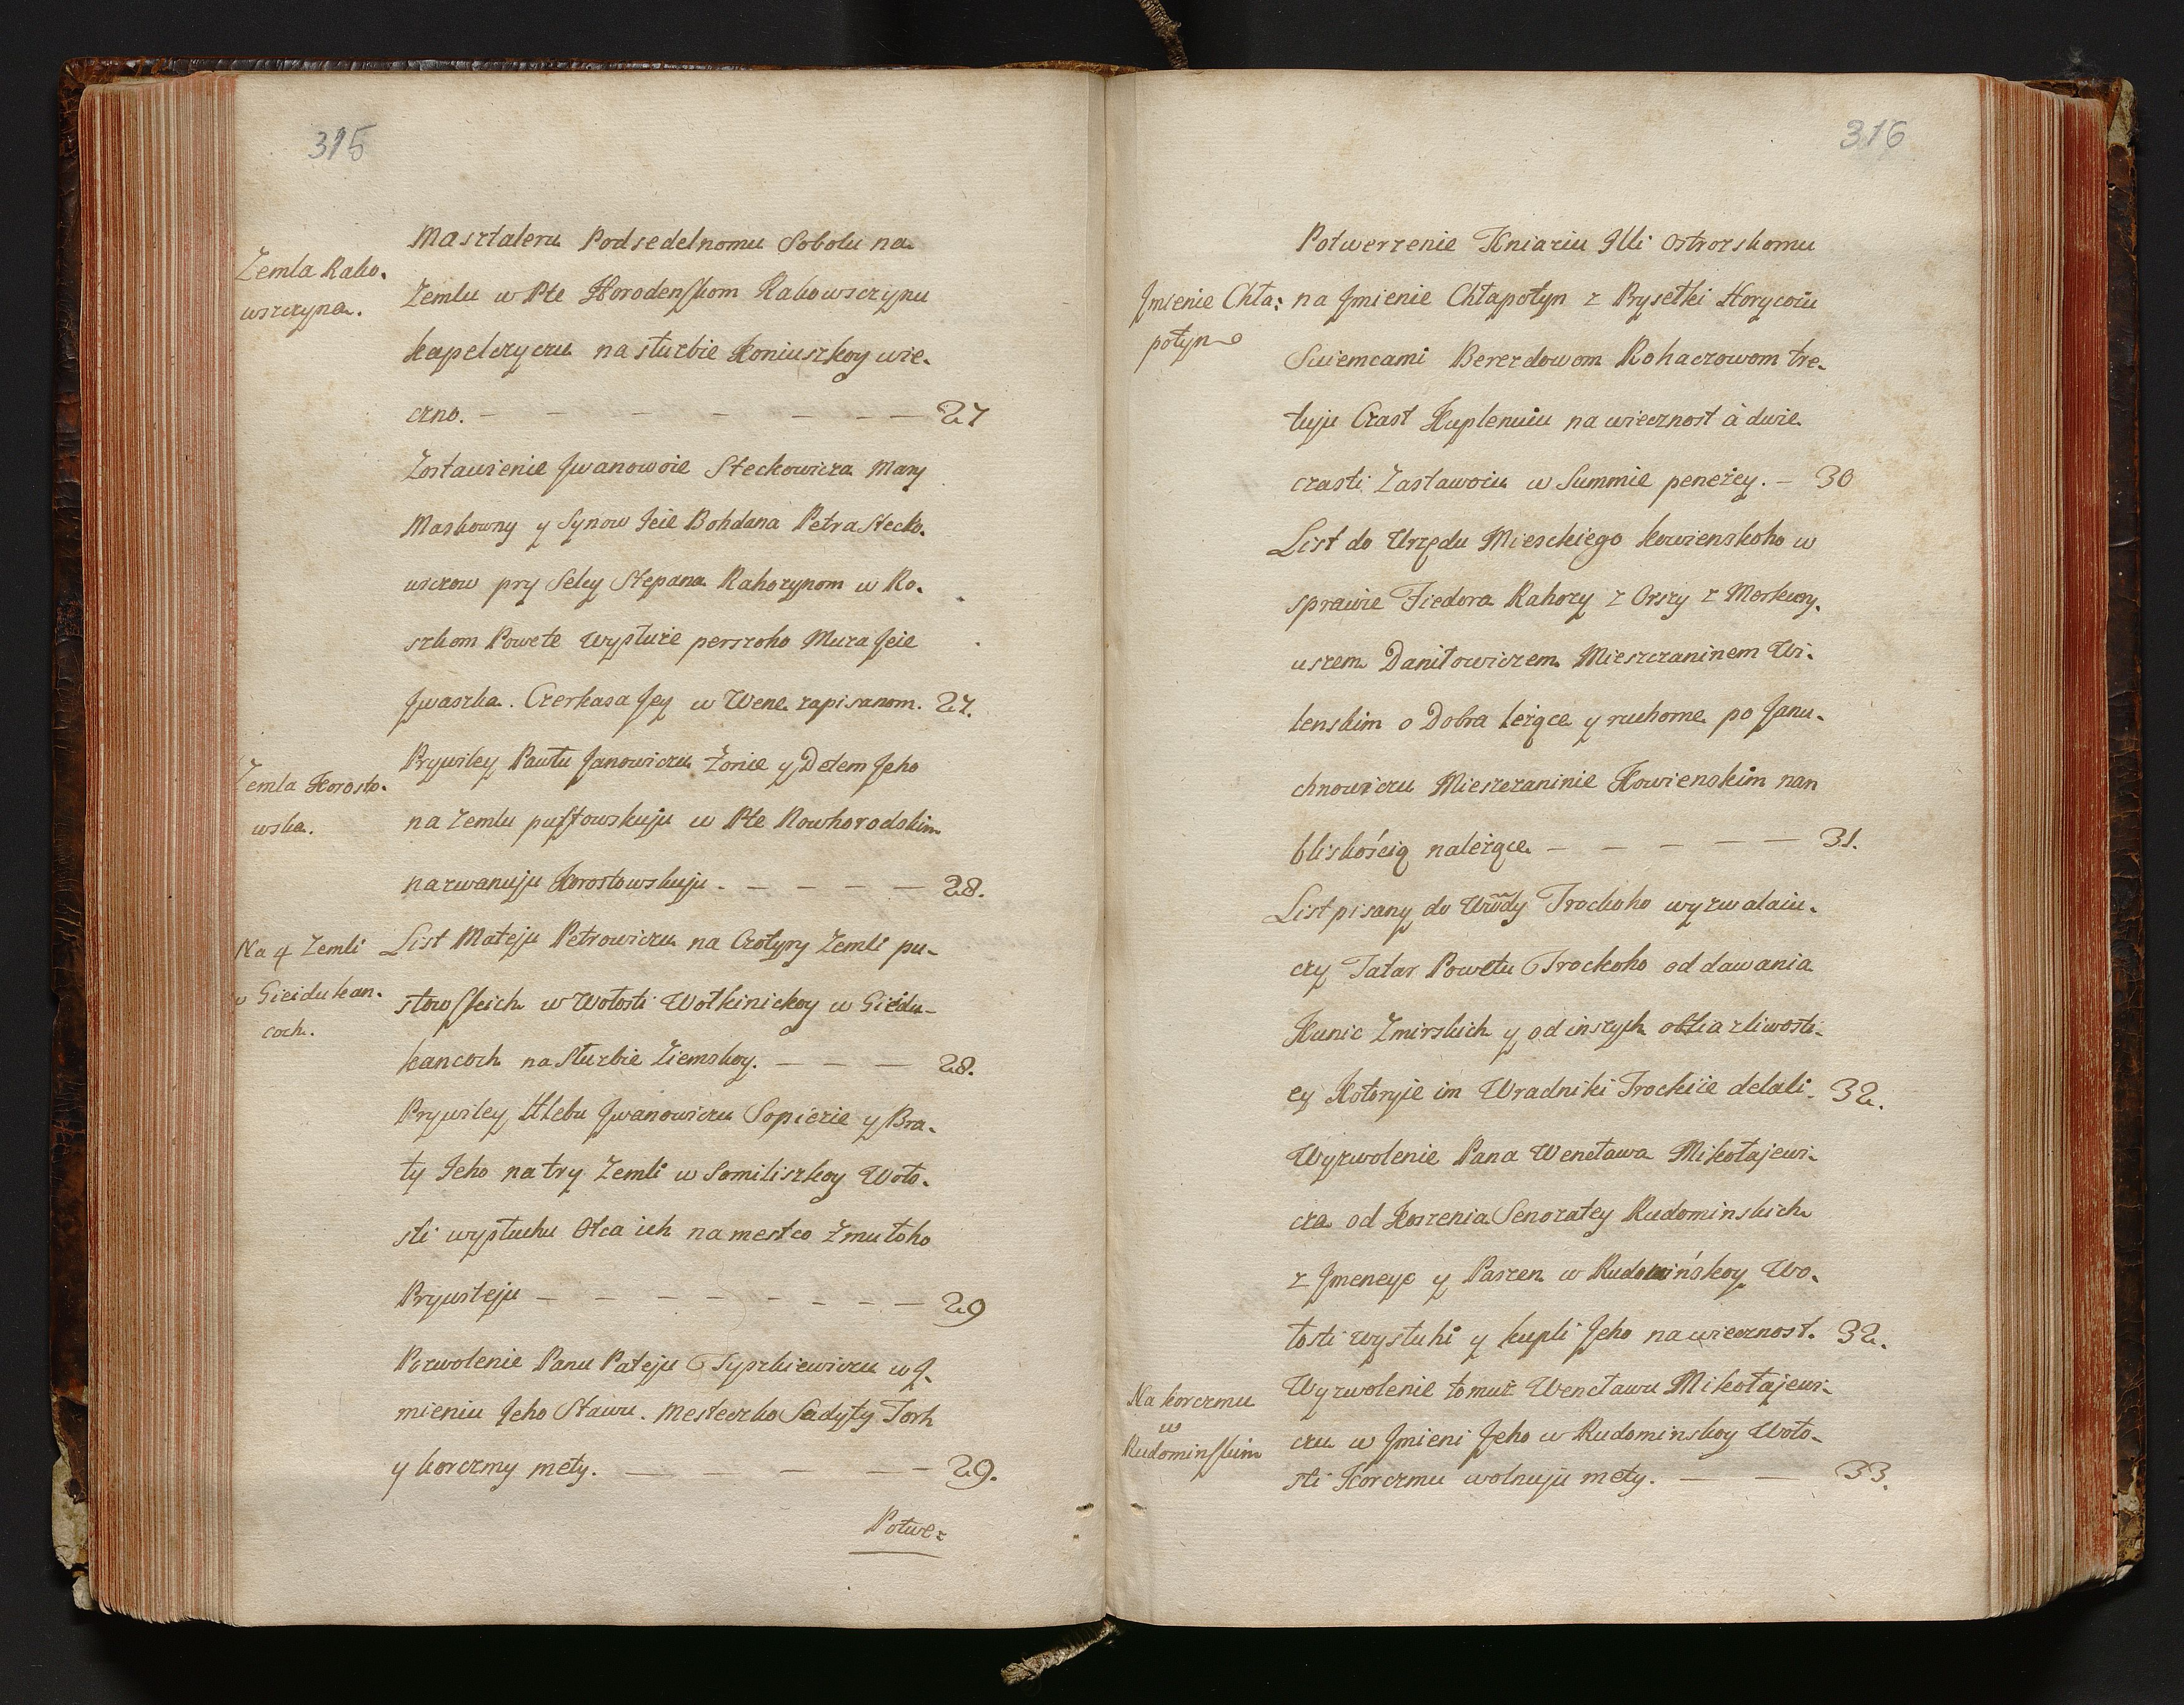 315
Zemla Rako-
wszczyna.
Masztaleru Podsedelnomu Sobolu na
Zemlu w Pte Horodenskom Rakowsczynu
kapelczyczu na służbie Koniuszkoy wie-
czno. — — — — — — — 27
Zostawienie Jwanowoie Steckowicza Mary
Maskowny y Synow Jeie Bohdana Petra Stecko-
wiczow pry Selcy Stepana Rahozynom w Ro-
szkom Powete Wysłuże perszoho Muza Jeie
Jwaszka. Czerkasa Jey w Wene zapisanom. 27.
Zemla Korosto-
wska.
Prywiley Pawłu Janowiczu Zonie y Detem Jeho
na Zemlu pustowskuju w Pte Nowhorodskim
nazwanuju Korostowskuju. — — — — 28.
Na 4 Zemli
w Gieidukan-
coch.
List Mateju Petrowiczu na Czotyry Zemli pu-
stowskich w Wołosti Wołkinickoy w Gieidu-
kancoch na Służbie Ziemskoy. — — — 28.
Prywiley Hlebu Jwanowiczu Sopiezie y Bra-
ty Jeho na try Zemli w Somiliszkoy Woło-
sti wysłuhu Otca ich na mestco Zmutoho
Prywileju — — — — — — — — 29
Pozwolenie Panu Pateju Tyszkiewiczu w J-
mieniu Jeho Stawu. Mesteczko Sadyty Torh
y korczmy mety. — — — — — 29.
Potwe-
316
Potwerzenie Kniaziu Jlli Ostrozskomu
Jmienie Chła-
potyn
na Jmienie Chłapotyn z Prysełki Horycoiu
Swiemcami Berezdowom Rohaczowom tre-
tuju Czast Kuplenuiu na wiecznost à dwie
czasti Zastawoiu w Summie penežey. — 30
List do Urzędu Miesckiego kowienskoho w
sprawie Fiedora Rahozy z Orszy z Merkury-
uszem Daniłowiczem Mieszczaninem Wi-
lenskim o Dobra leżące y ruchome po Janu-
chnowiczu Mieszczaninie Kowienskim nan
bliskością należące — — — — — 31.
List pisany do Wwdy Trockoho wyzwalaiu-
czy Tatar Powetu Trockoho od dawania
Kunic Zmirskich y od inszych obtiazliwosti-
ey Kotoryie im Wradniki Trockiie delali. 32.
Wyzwolenie Pana Wencława Mikołajewi-
cza od Koszenia Senozatey Rudominskich
z Jmeneyc y Paszen w Rudominskoy Wo-
łosti wysłuhi y kupli Jeho na wiecznost. 32.
Na korczmu
w
Rudominskim
Wyzwolenie tomuż Wencławu Mikołajewi-
czu w Jmieni Jeho w Rudominskoy Woło-
sti Korczmu wolnuju mety. — — 33.